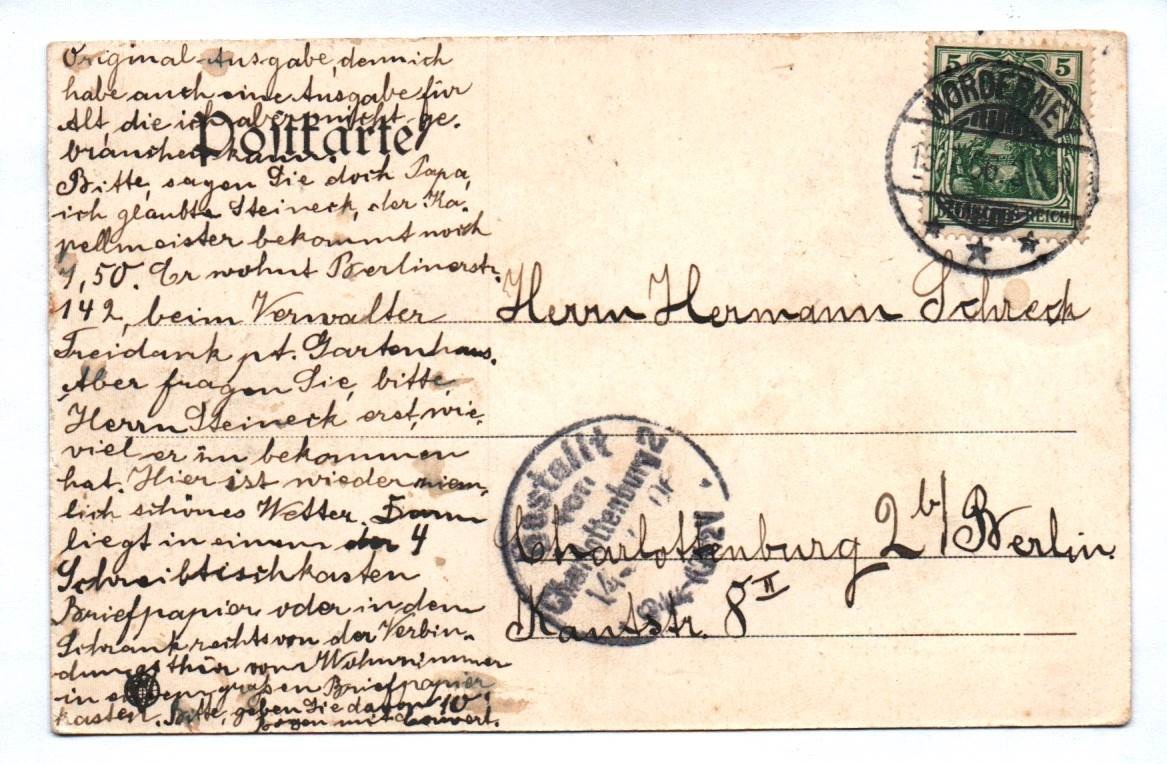 Original-Ausgabe, denn ich
habe auch eine Ausgabe für
Alt, die ich aber nicht ge-
brauchen kann.
Postkarte
Bitte, sagen Sie doch Papa,
ich glaubte Steineck, der Ka-
pellmeister bekommt noch
1,50. Er wohnt Berlinerstr.
142, beim Verwalter
Freidank pt. Gartenhaus.
Aber fragen Sie, bitte,
Herrn Steineck erst, wie-
viel er im bekommen
hat. Hier ist wieder ziem-
lich schönes Wetter. Dann
liegt in einem der 4
Schreibtischkasten
Briefpapier oder in dem
Schrank rechts von der Verbin-
dungsthür vom Wohnzimmer
in großen Briefpapier-
kasten. Bitte, geben Sie davon 10
Bogen mit Couvert.
5 5
NORDERNEY
DEUTSCHES REICH
Herrn Hermann Schreck
Charlottenburg 2 b/Berlin.
Kantstr. 8 II
Bestellt
von
Charlottenburg 2